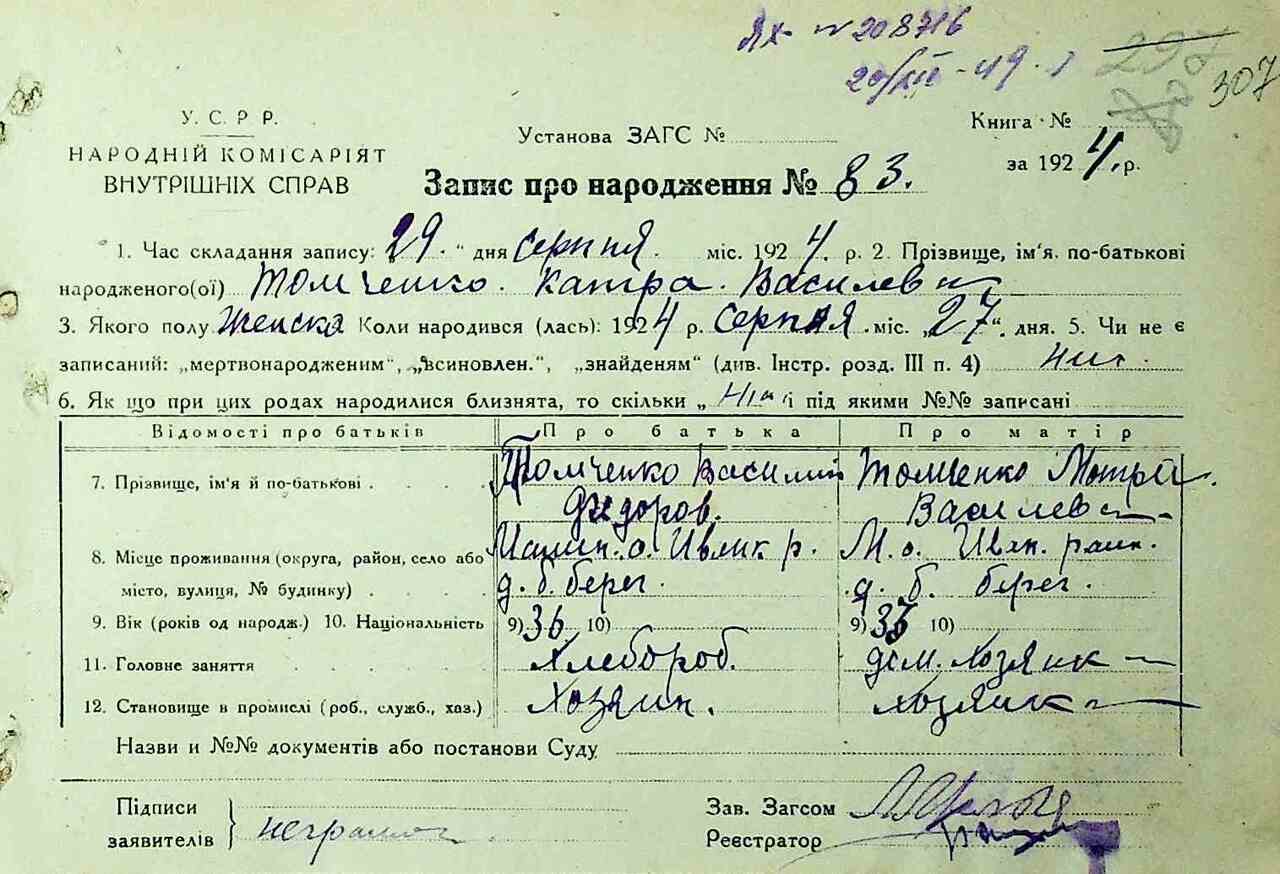 ЯХ № 208716
20/XII - 49 г
297
307
У. С. Р. Р.
НАРОДНІЙ КОМІСАРІЯТ
ВНУТРІШНІХ СПРАВ
Установа ЗАГС №
Книга №
за 1924 р.
Запис про народження № 83.
1. Час складання запису: 29 " дня Серпня міс. 1924 р. 2. Прізвище, ім'я. по-батькові
народженого(ої) Томченко Катра Василев
3. Якого полу Женска Коли народився (лась): 1924 р. Серпня міс. „27“ дня. 5. Чи не є
записаний: „мертвонародженим“, „всиновлен.“, „знайденям“ (див. Інстр. розд. III п. 4) нит
6. Як що при цих родах народилися близнята, то скільки „ і під якими №№ записані
Відомості про батьків Про батька Про матір
7. Прізвище, ім'я й по-батькові Томченко Василий Томченко Мотря
Федоров. Василев
8. Місце проживання (округа, район, село або о. р. М. о. Иван. раин.
місто, вулиця, № будинку) д. б. берег. д. б. берег.
9. Вік (років од народж.) 10. Національність 9) 36 10) 9) 33 10)
11. Головне заняття Хлебороб. дом. хозяик
12. Становище в промислі (роб., служб., хаз.) Хозяин. хозяик
Назви и №№ документів або постанови Суду
Підписи
заявителів неграмот
Зав. Загсом
Реєстратор